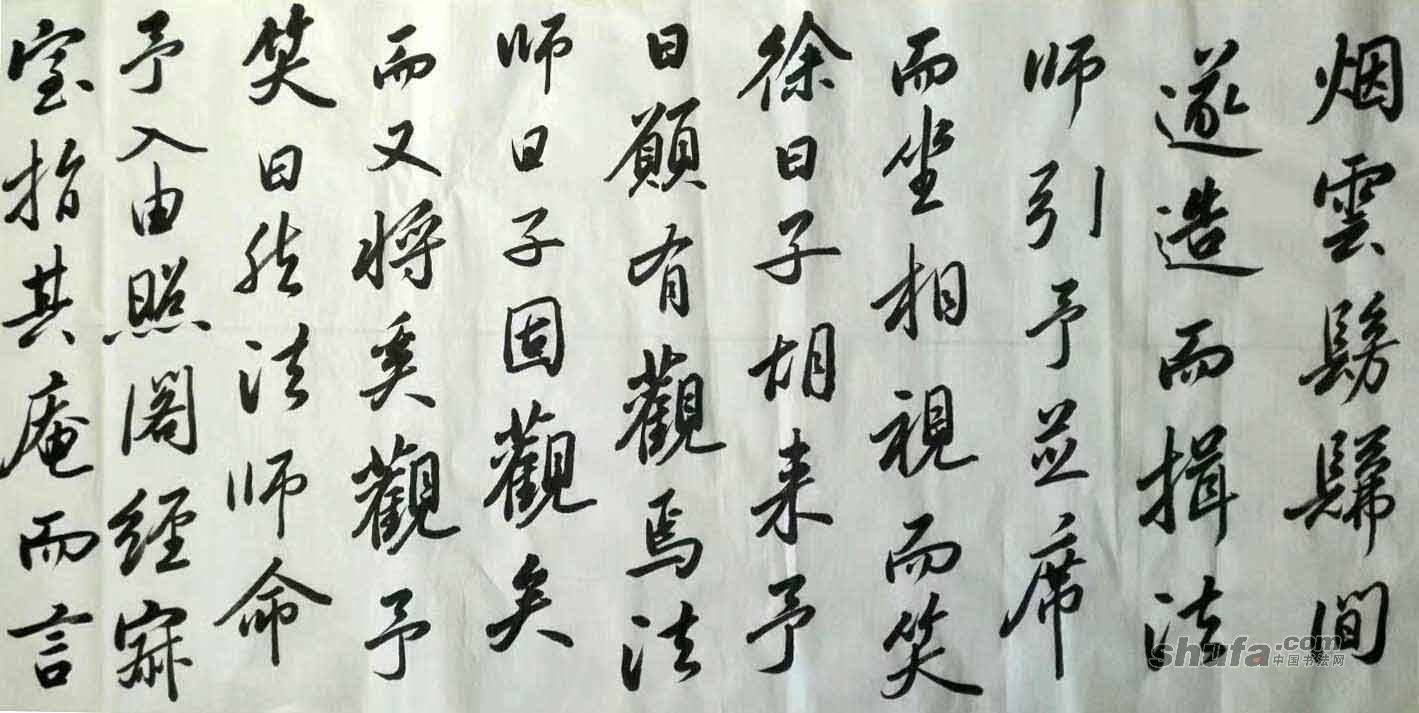 烟雲髣髴間
遂造而揖法
师引予並席
而坐相視而笑
徐曰子胡来予
曰願有觀焉法
师曰子固觀矣
而又将奚觀予
笑曰然法师命
予入由照阁經寂
室指其庵而言
shufa.com
中国书法网